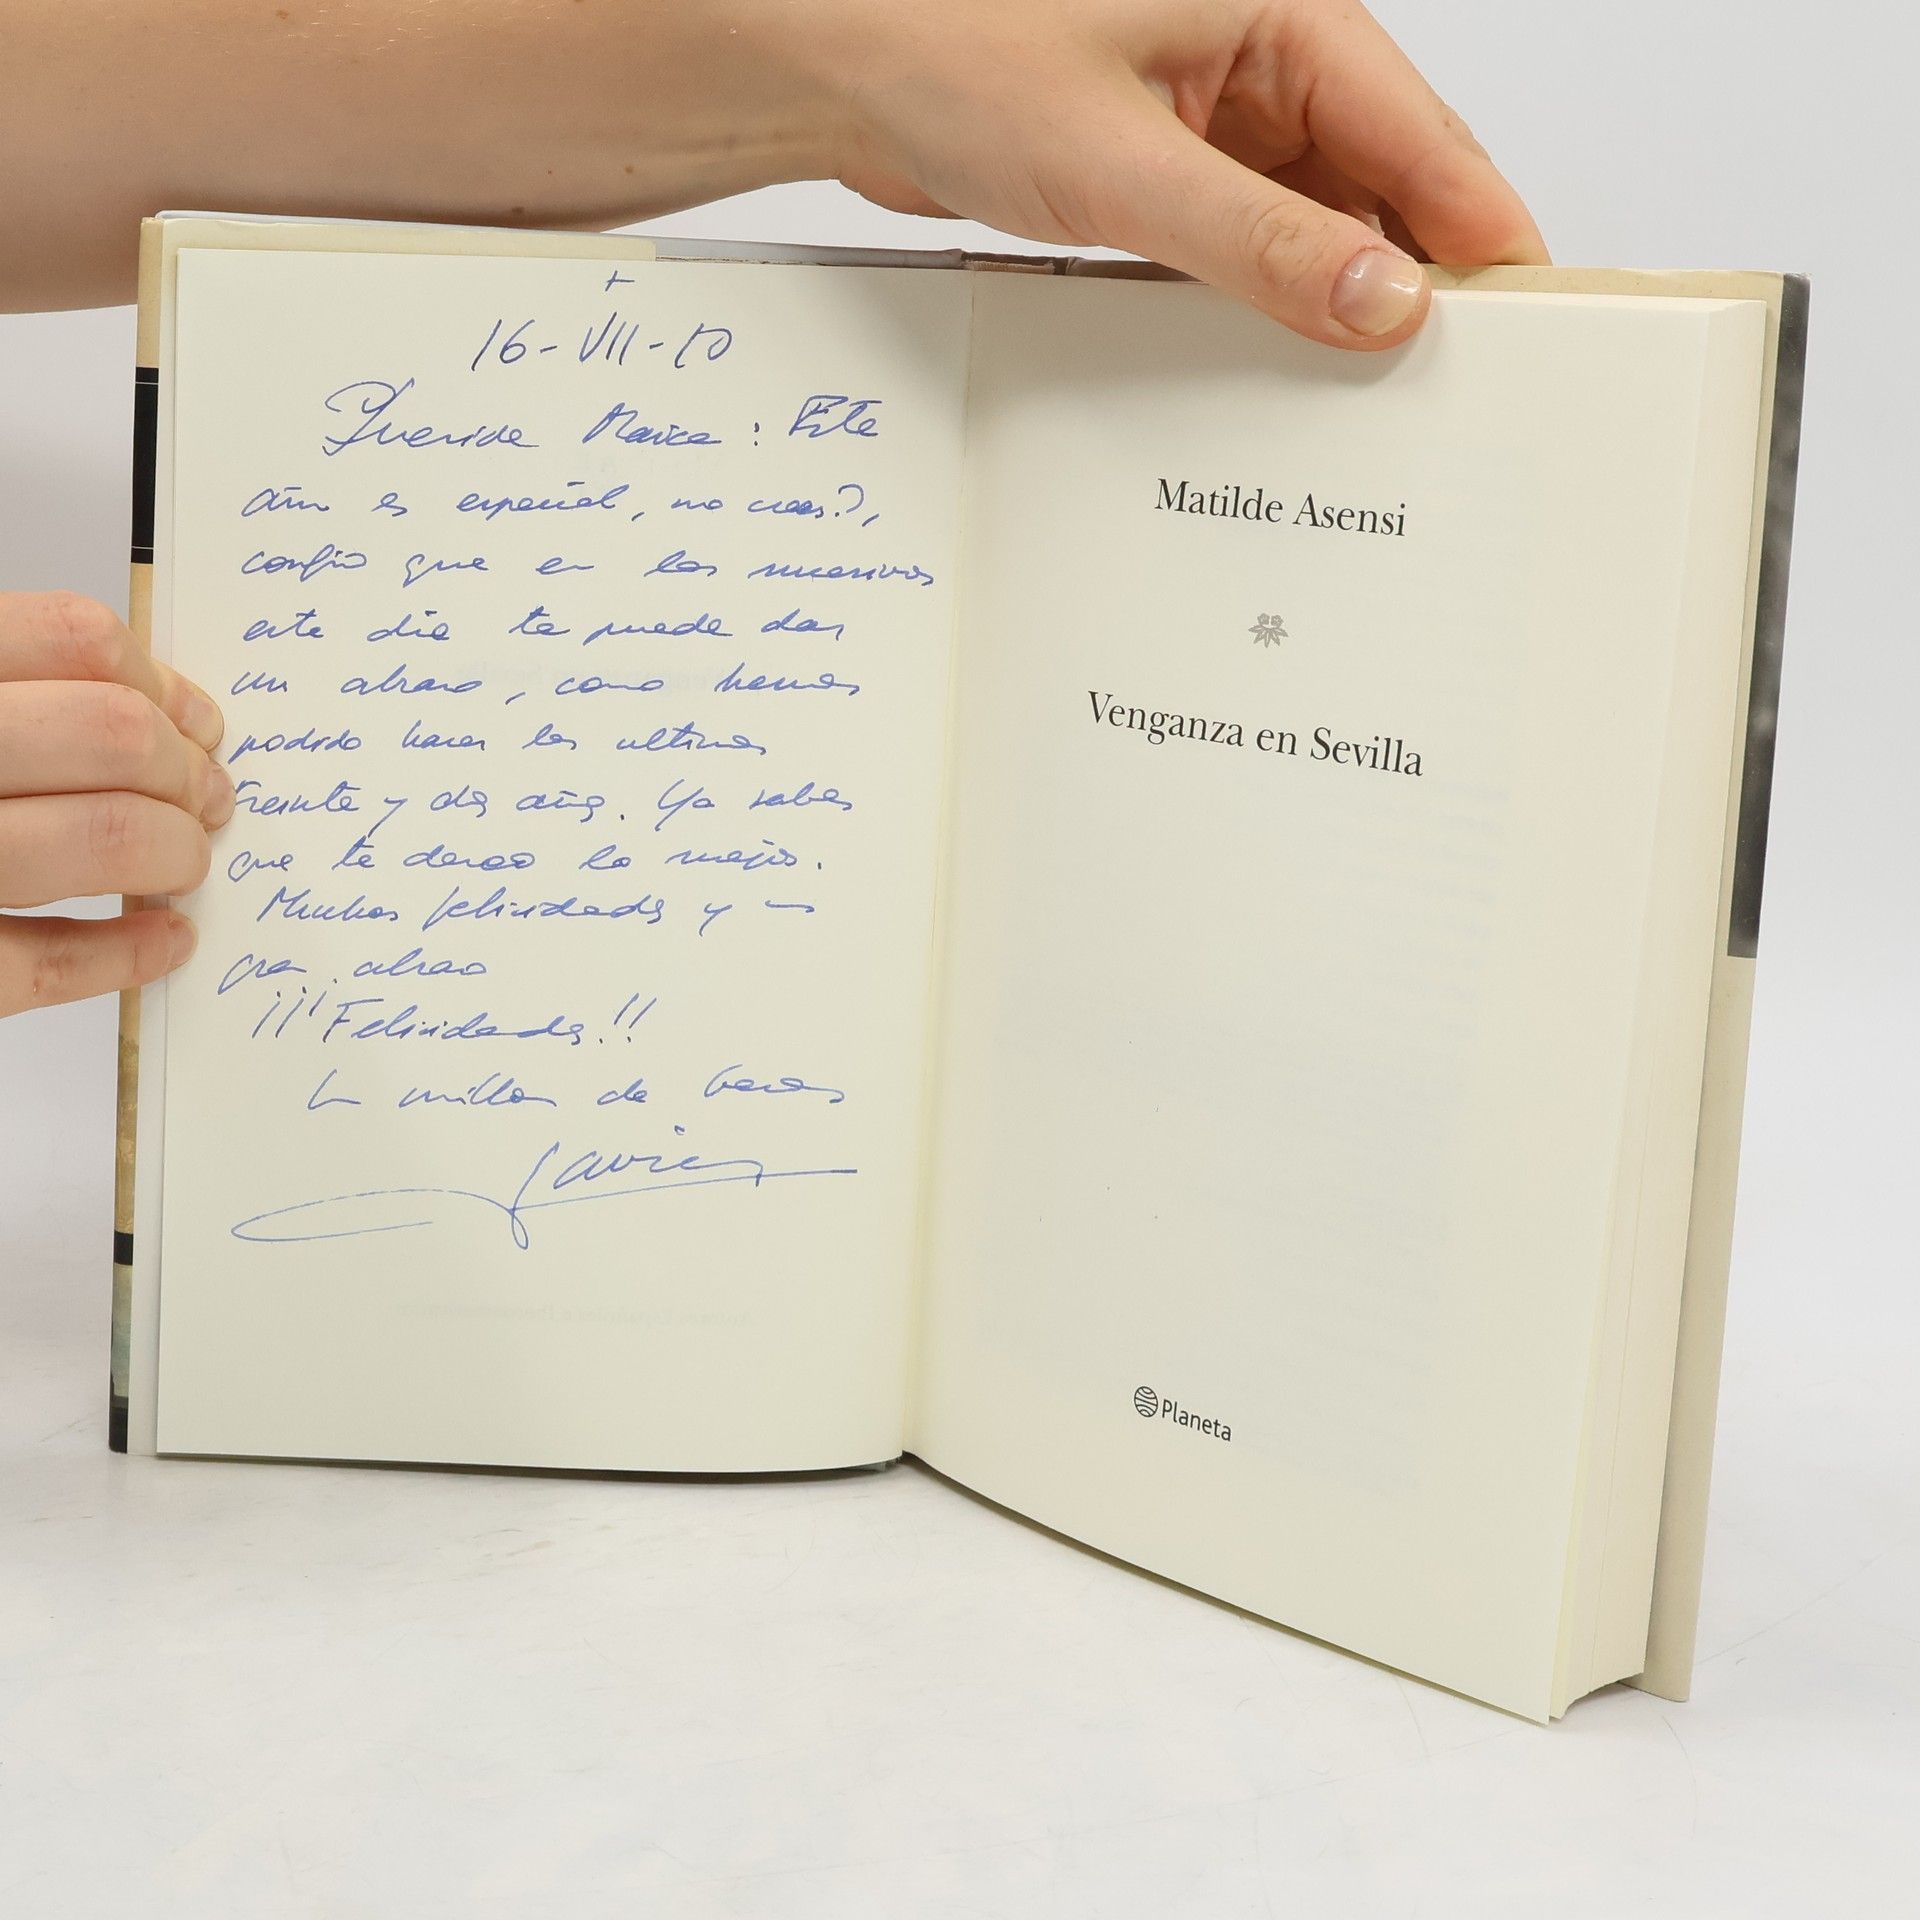 +
16-VII-10
Querida Marica: Este
año es especial, no crees?,
confío que en los sucesivos
este día te pueda dar
un abrazo, como hemos
podido hacer los ultimos
treinta y dos años. Ya sabes
que te deseo lo mejor.
Muchas felicidades y un
gran abrazo
¡¡¡Felicidades!!
Un millon de besos
Javier
Matilde Asensi
Venganza en Sevilla
Planeta